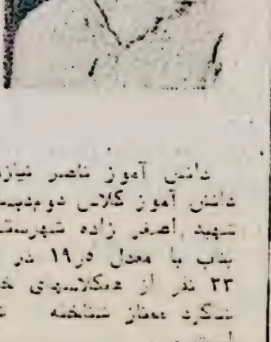 دانش آموز ناصر نیاز
دانش آموز کلاس دوم
شهید اصغر زاده شهرست
بناب با معدل ۱۹ در
۳۳ نفر از همکلاسیهای خ
شاگرد ممتاز شناخته